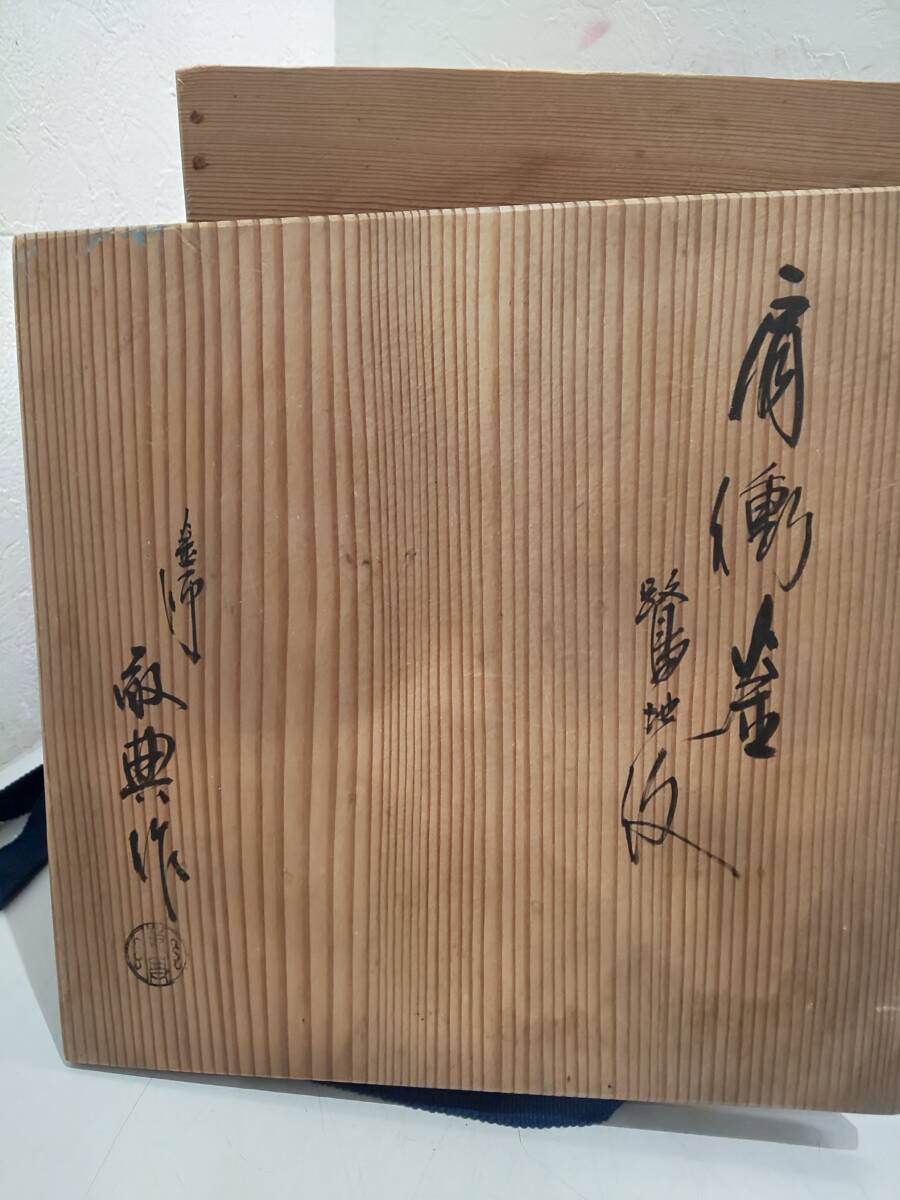 肩衝釜
鷺地紋
釜師
敬典作